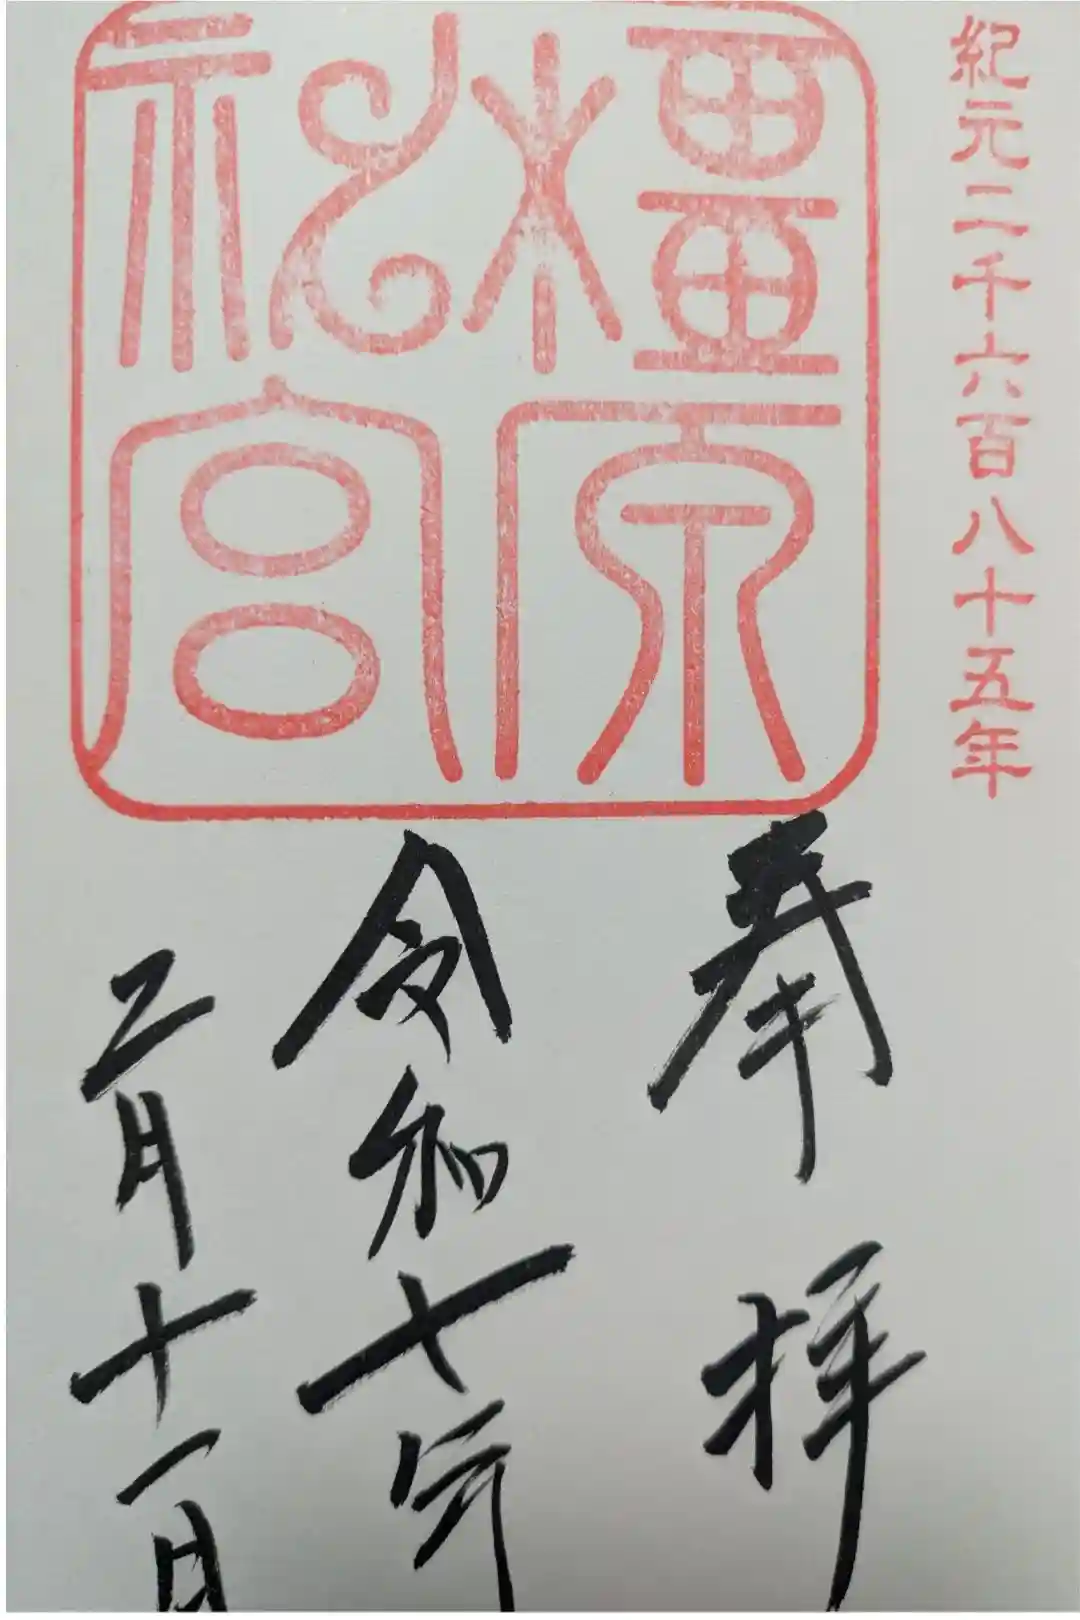 紀元二千六百八十五年
橿原
神宮
奉拝
令和七年
二月十一日